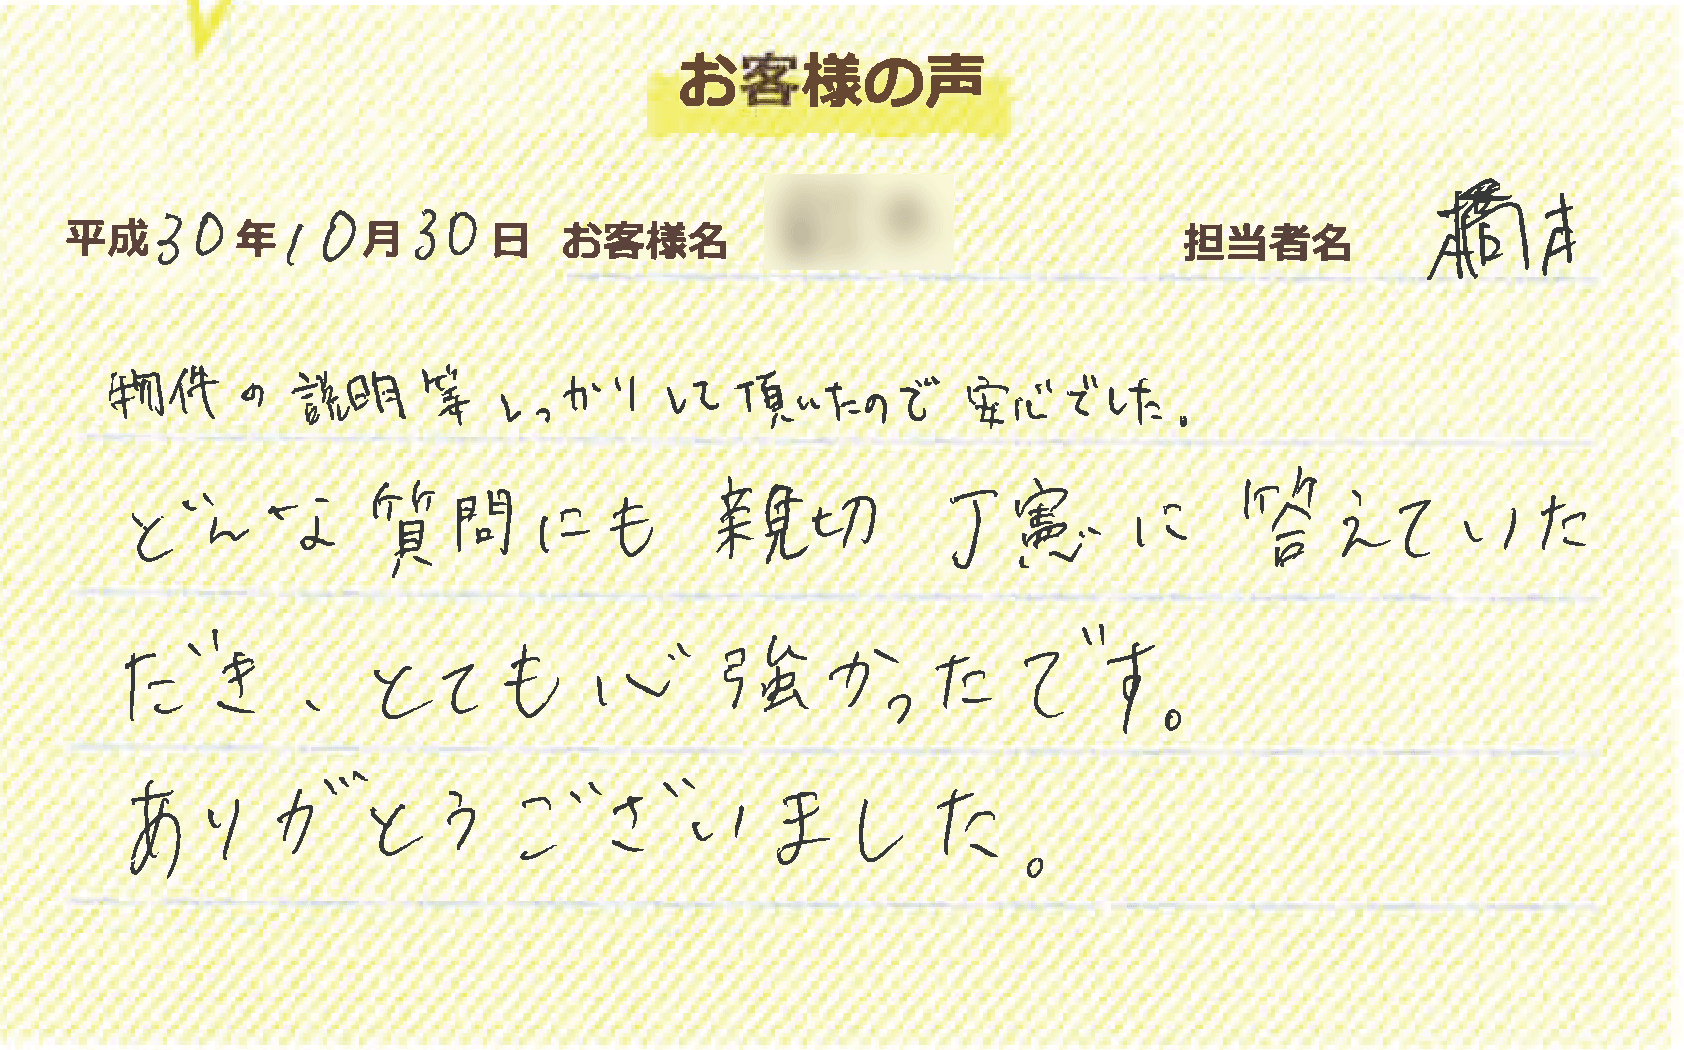 お客様の声
平成30年10月30日 お客様名 担当者名 橋本
物件の説明等しっかりして頂いたので安心でした。
どんな質問にも親切丁寧に答えていた
だき、とても心強かったです。
ありがとうございました。